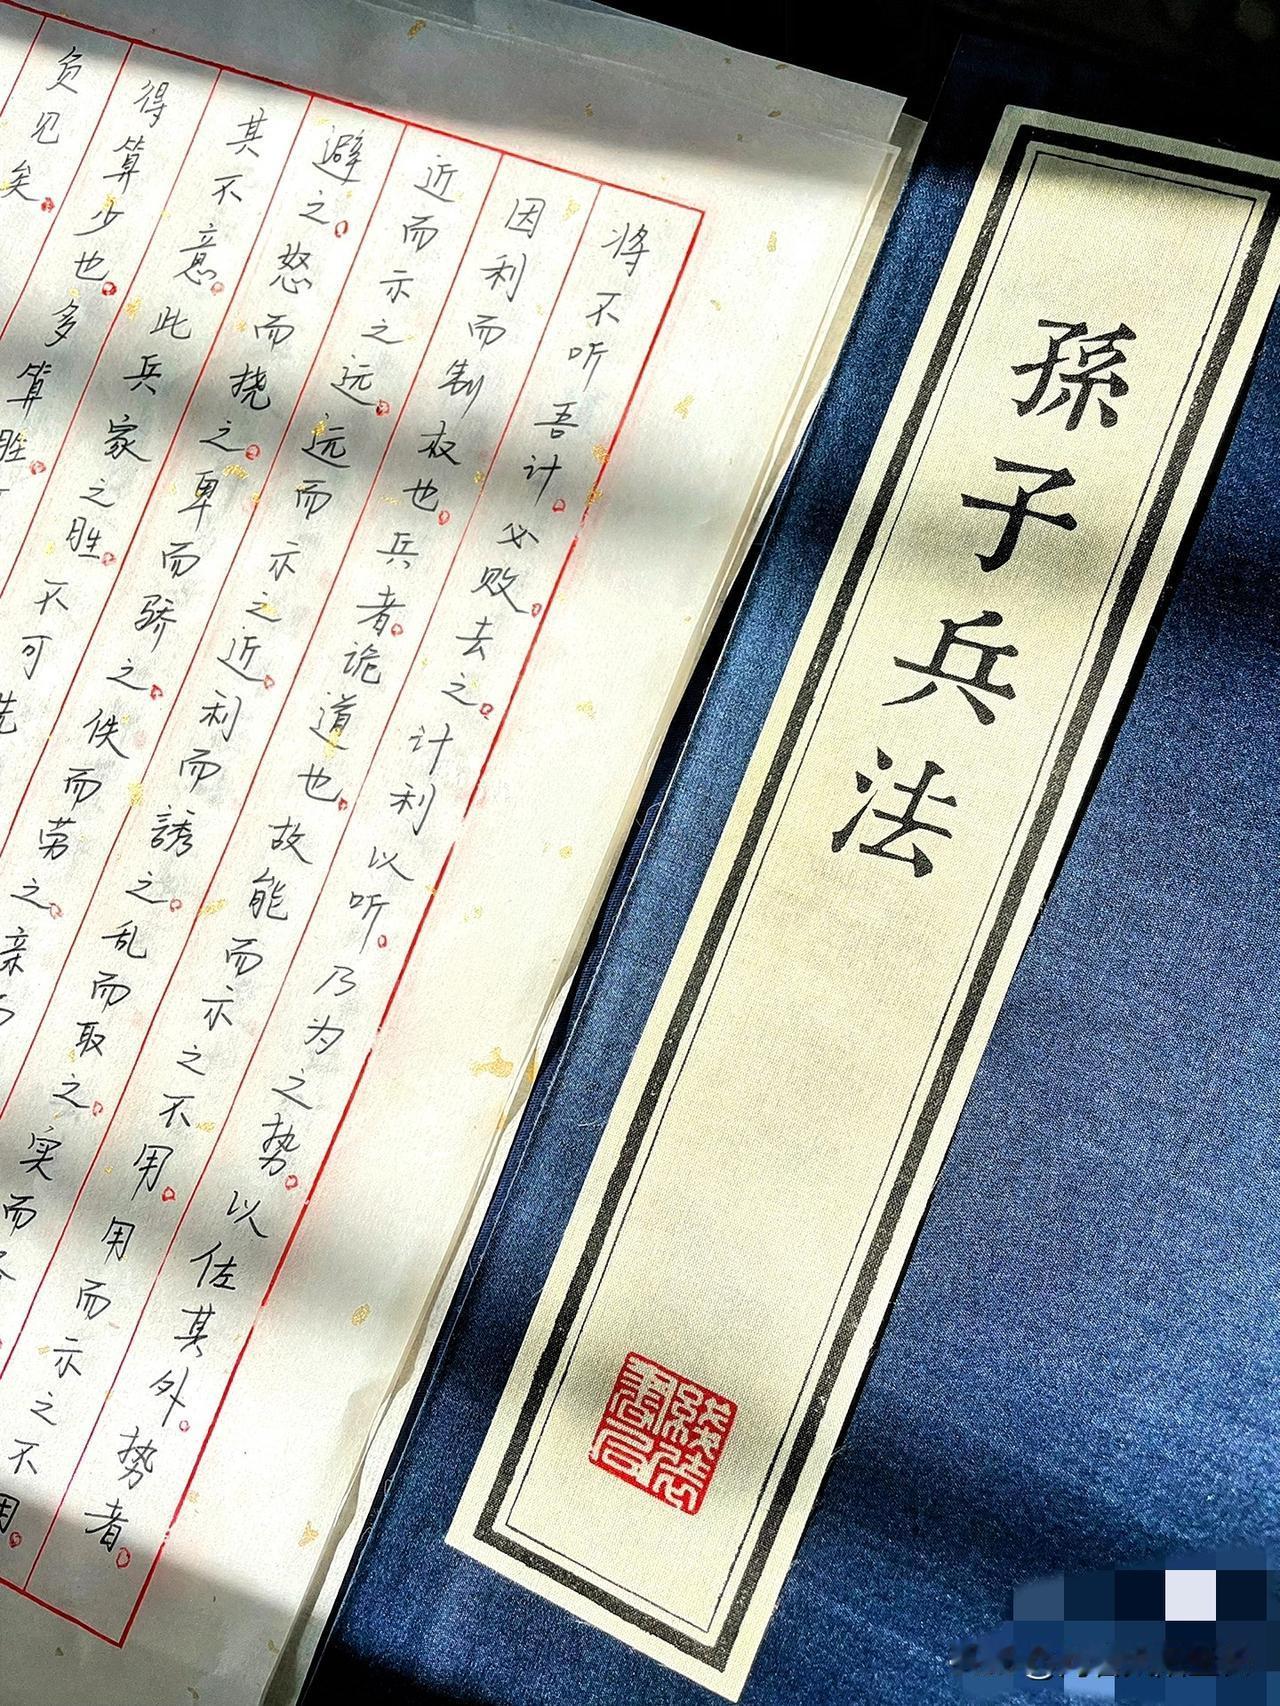 将不听吾计。必败。去之。计利以听。乃为之势。以佐其外。势者。
因利而制权也。兵者。诡道也。故能而示之不用。用而示之不用。
近而示之远。远而示之近。利而誘之。乱而取之。实而
避之。怒而挠之。卑而骄之。佚而劳之。亲
其不意。此兵家之胜。不可先
得算少也。多算胜。
负见矣。
孫子兵法